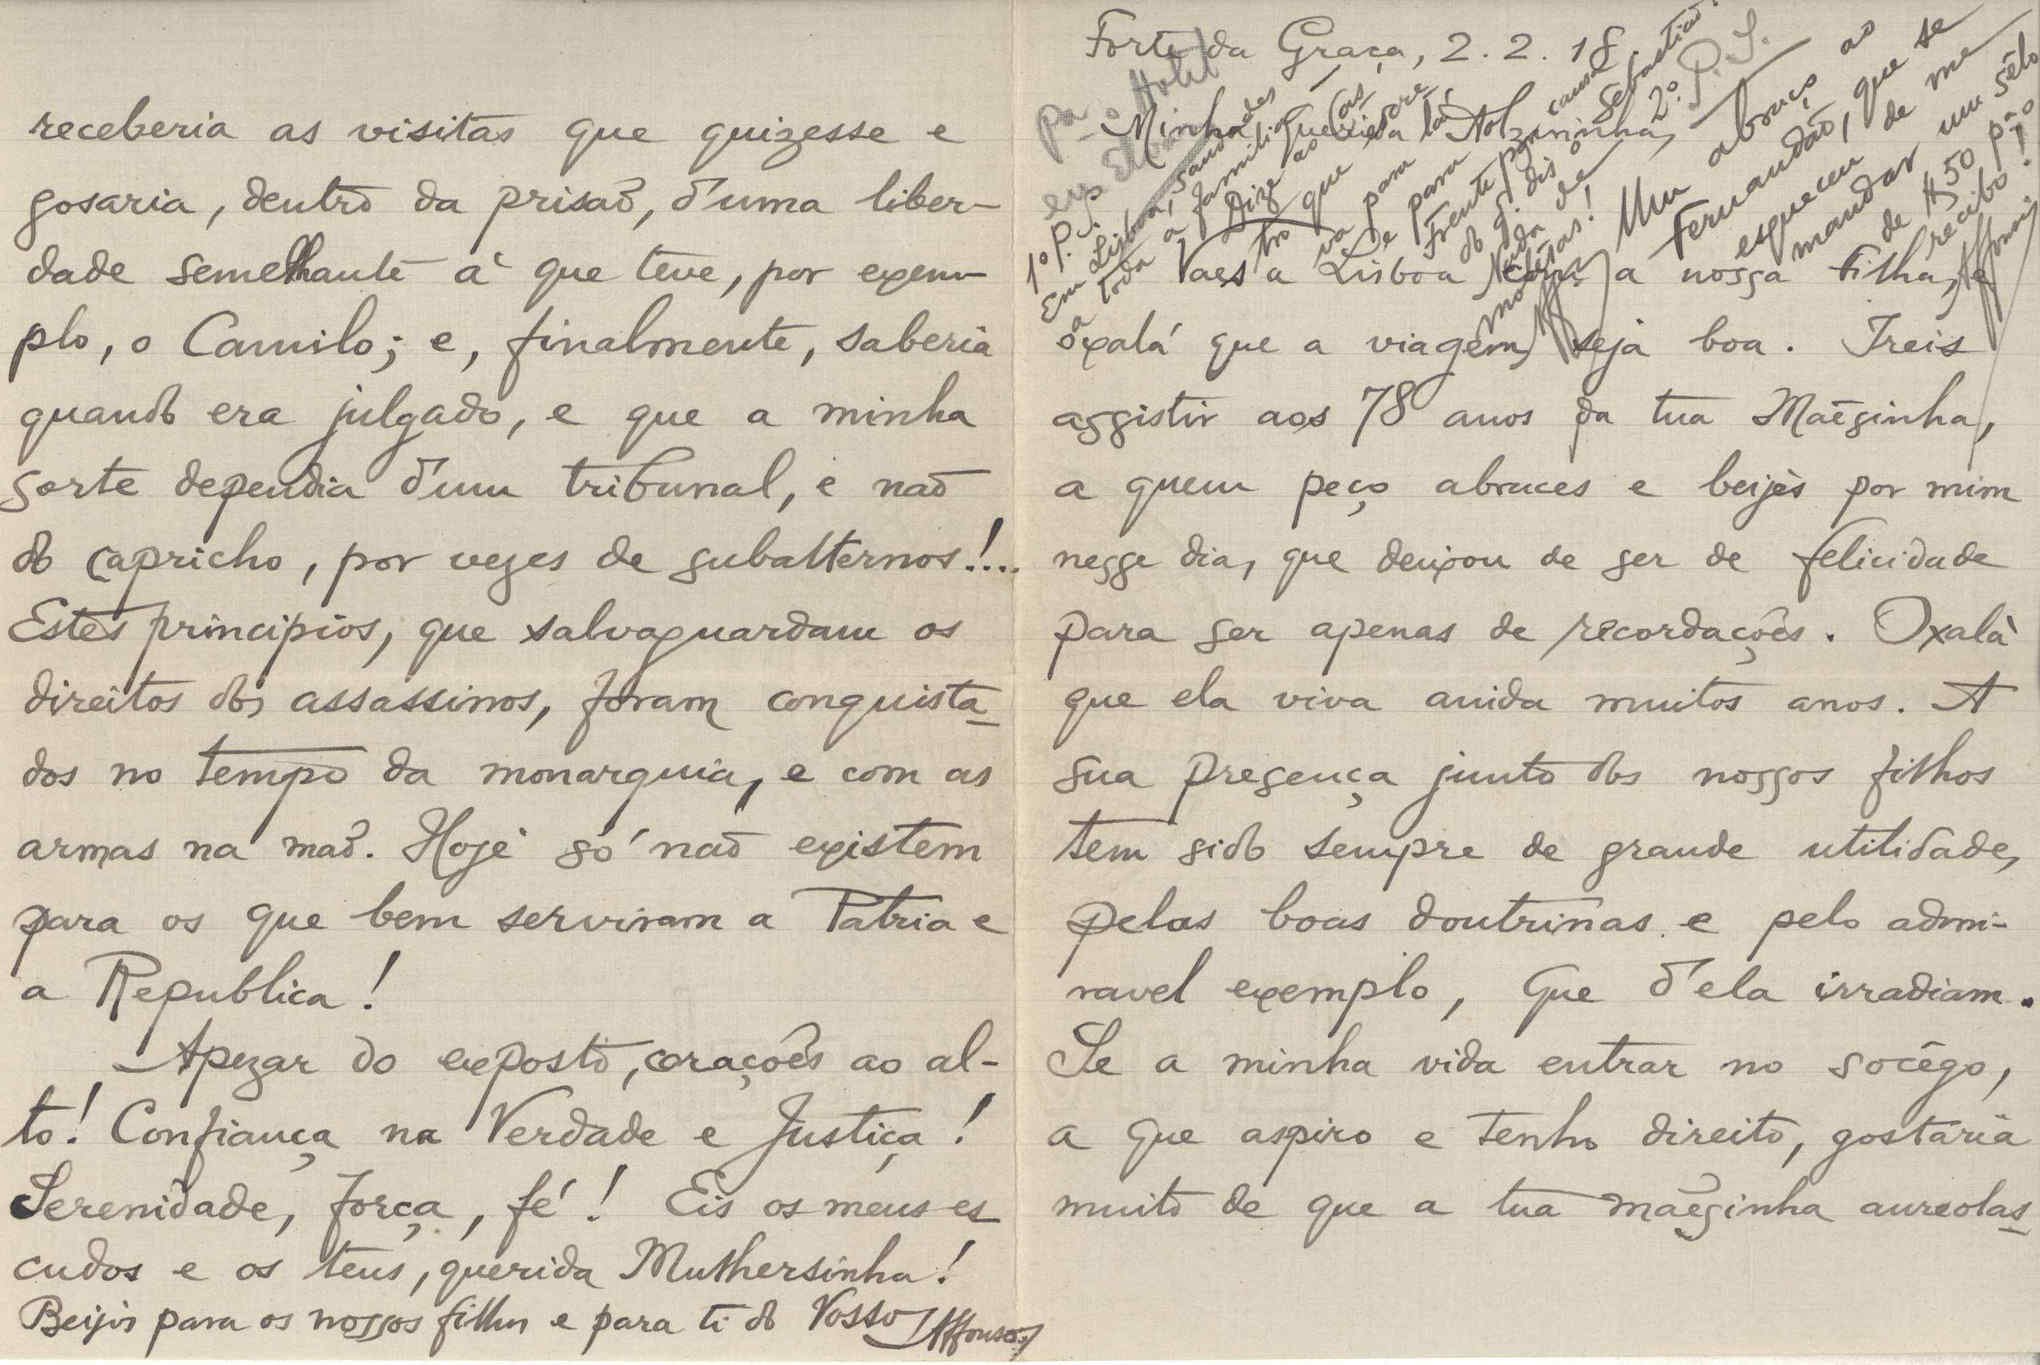 Forte da Graça, 2. 2. 18
Minha querida Alzirinha,
Vaes a Lisboa com a nossa filha, e
oxalá que a viagem seja boa. Ireis
assistir aos 78 anos da tua Mãesinha,
a quem peço abraces e beijes por mim
nesse dia, que deixou de ser de felicidade
para ser apenas de recordações. Oxalá
que ela viva ainda muitos anos. A
sua presença junto dos nossos filhos
tem sido sempre de grande utilidade,
pelas boas doutrinas e pelo admi-
ravel exemplo, que d'ela irradiam.
Se a minha vida entrar no socêgo,
a que aspiro e tenho direito, gostaria
muito de que a tua mãesinha aureolas-
1º P.S.
Em Lisboa, saudades
a toda a familia
Dize ao
que
para lá
Se para
Frente
do G. dis o Sebastião
Nada de
notas!
2º P.S.
Um abraço ao
Fernandão, que se
esqueceu de me
mandar um sêlo
de \$50 pão
recibo!
Affonso
receberia as visitas que quizesse e
gosaria, dentro da prisão, d'uma liber-
dade semelhante á que teve, por exem-
plo, o Camilo; e, finalmente, saberia
quando era julgado, e que a minha
sorte dependia d'um tribunal, e não
do capricho, por vezes de subalternos!...
Estes principios, que salvaguardam os
direitos dos assassinos, foram conquista-
dos no tempo da monarquia, e com as
armas na mão. Hoje só não existem
para os que bem serviram a Patria e
a Republica!
Apezar do exposto, corações ao al-
to! Confiança na Verdade e Justiça!
Serenidade, força, fé! Eis os meus es
cudos e os teus, querida Mulhersinha!
Beijos para os nossos filhos e para ti do Vosso Affonso